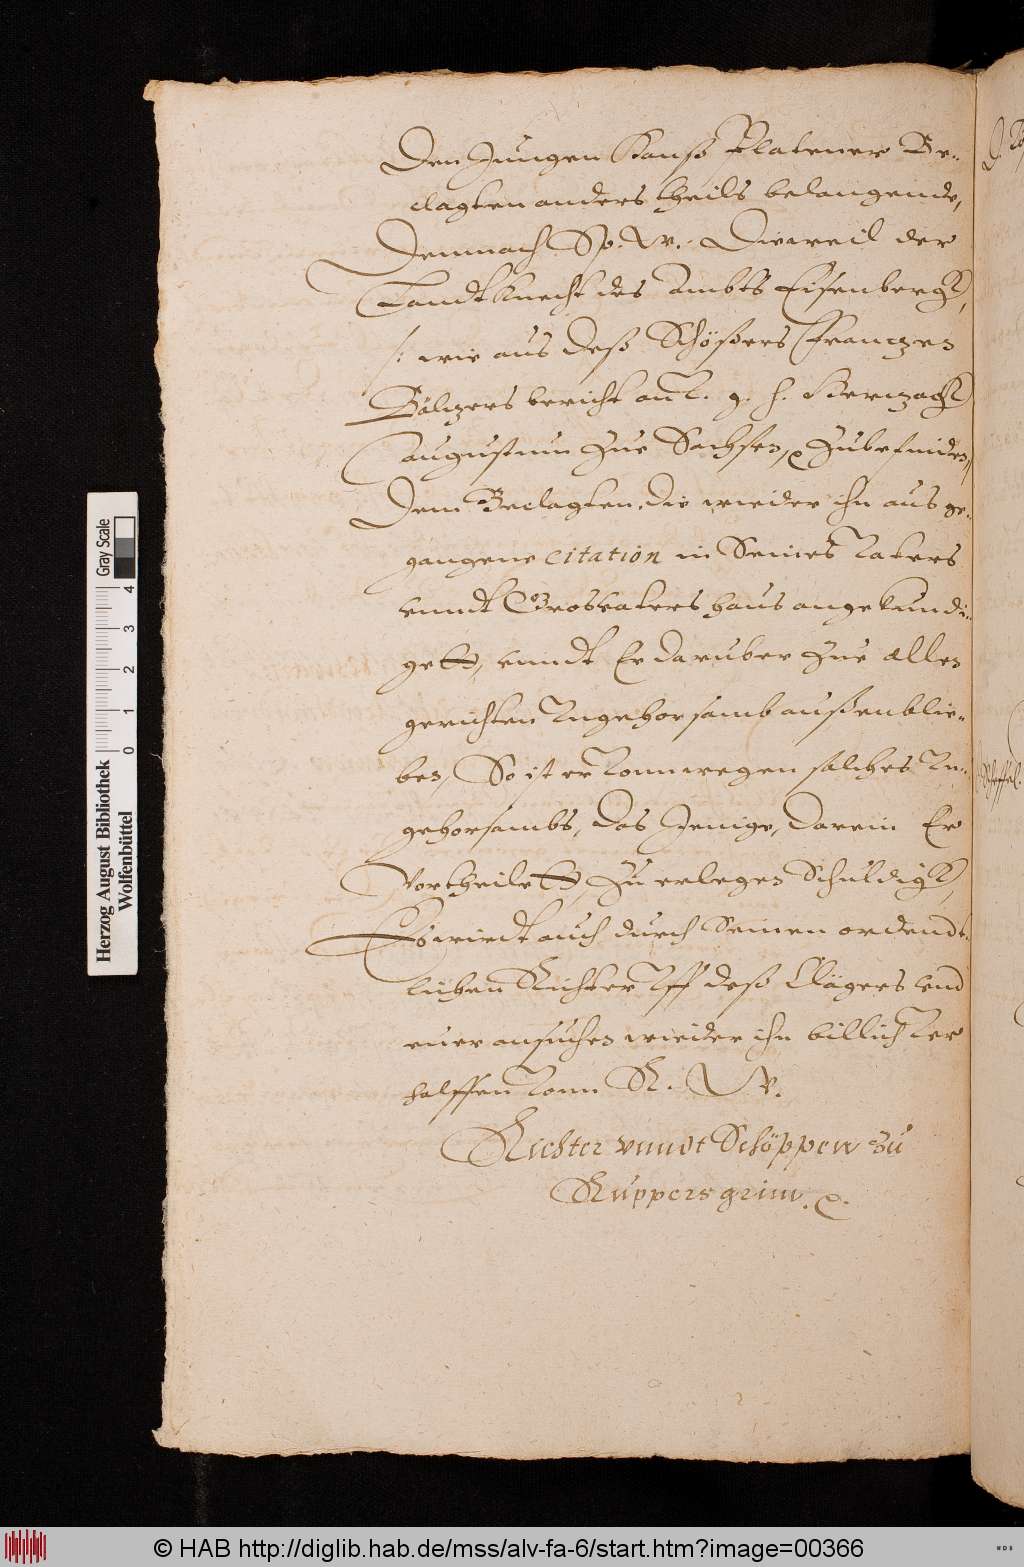 Den Jungen Hanß Platener Be-
clagten anders theils belangende,
Demnach Sp. W. Dieweil der
Landtknecht des Ambts Eisenbergk,
/: wie aus deß Schößers Franczen
bericht an g. h. Herczogk
Augustum zue Sachsen, zubefinden,
Dem Beclagten, die wieder ihn aus ge-
gangene citation in Seines Vaters
vnndt Grosvaters haus angekundi-
gett, vnndt Er daruber zue allen
gerichten Vngehorsamb außenblie-
ben, So ist er vonn wegen solches Vn-
gehorsambs, das Jenige, darein Er
vortheilett, zu erlegen Schuldigk,
Es wirdt auch durch Seinen ordend-
lichen Richter Vff deß Clägers vnd
euer ansuchen wieder ihn billich Ver
holffen Vonn R. W.
Richter vnndt Schöppen zu
Ruppersgrün.
Herzog August Bibliothek
Wolfenbüttel
0 1 2 3 4
Gray Scale
© HAB http://diglib.hab.de/mss/alv-fa-6/start.htm?image=00366